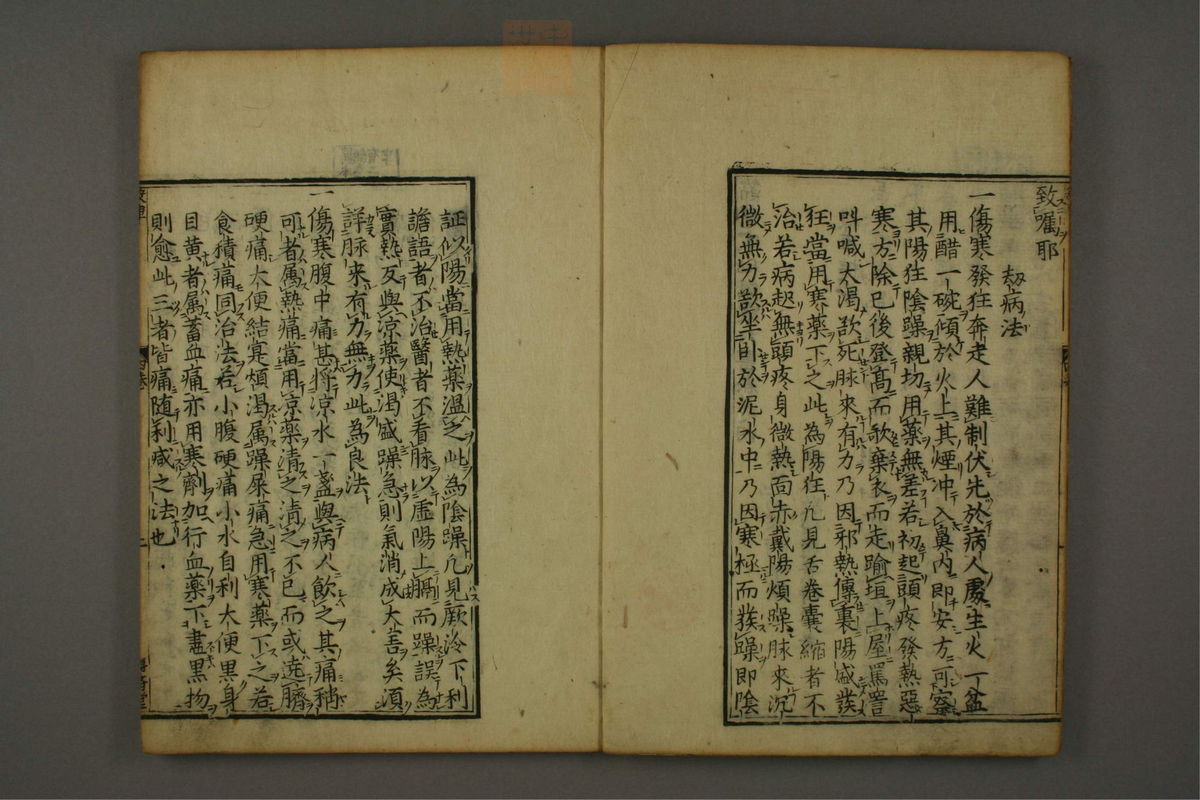 致囑耶
刼病法
一傷寒發狂奔走人難制伏先於病人處生火一盆
用醋一碗傾於火上其煙冲入鼻內即安方可察
其陽狂陰躁親切用藥無差若初起頭疼發熱惡
寒方除已後登高而歌棄衣而走踰垣上屋罵詈
叫喊大渴欲死脉來有力乃因邪熱傳裏陽盛發
狂當用寒藥下之此為陽狂凡見舌卷囊縮者不
治若病起無頭疼身微熱面赤戴陽煩躁脉來沉
微無力欲坐卧於泥水中乃因寒極而發躁即陰
証似陽當用熱藥溫之此為陰躁凡見厥冷下利
譫語者不治醫者不看脉以虛陽上膈而躁誤為
實熱反與凉藥使渴盛躁急則氣消成大害矣須
詳脉來有力無力此為良法
一傷寒腹中痛甚將凉水一盞與病人飲之其痛稍
可者属熱痛當用凉藥清之清之不已而或遶臍
硬痛大便結實煩渴属躁屎痛急用寒藥下之若
食積痛同治法若小腹硬痛小水自利大便黑身
目黄者属蓄血痛亦用寒劑加行血藥下盡黒物
則愈此三者皆痛随利减之法也